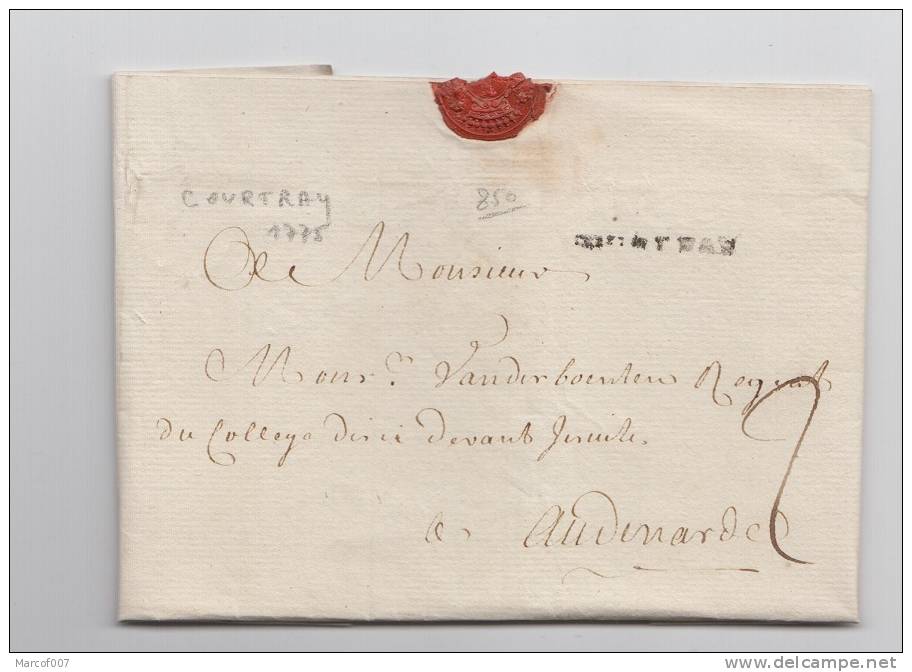 COURTRAY
1775
850
COURTRAY
A Monsieur
Monsr. Vanderboenten Regent
du College disci devant Jesuite
a Audenarde
2
Marcof007
www.delcampe.net